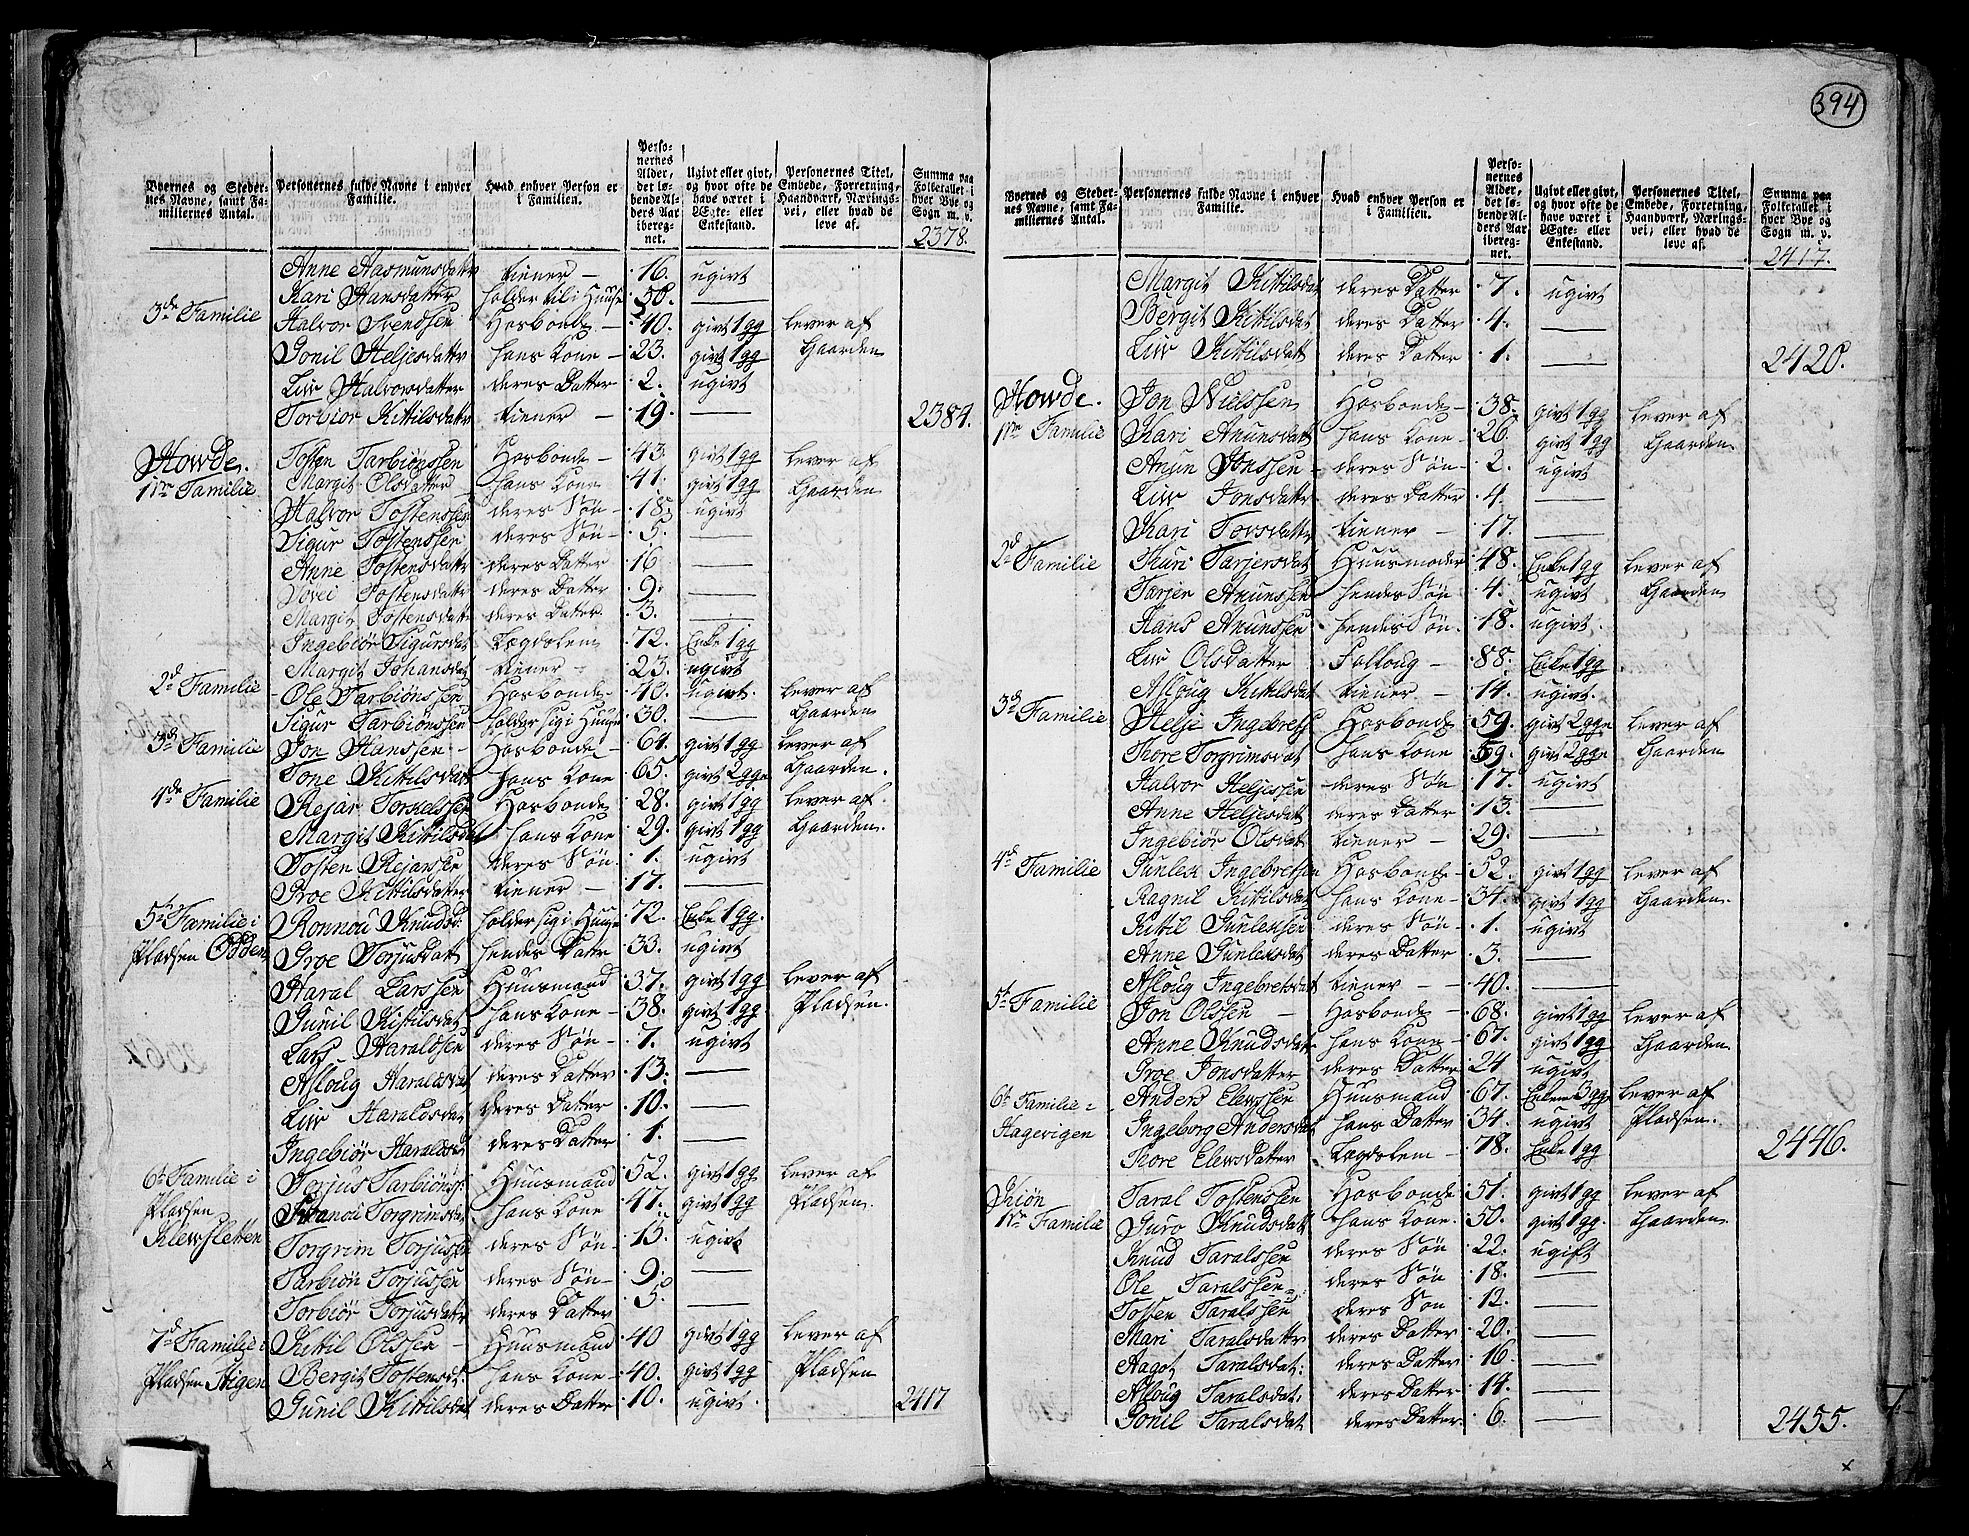 394
Byernes og Stedernes Navne, samt Familiernes Antal. | Personernes fulde Navne i enhver Familie. | Hvad enhver Person er i Familien. | Personernes Alder, det løbende Alders Aar iberegnet. | Ugivt eller givt, og hvor ofte de have været i Ægte- eller Enkestand. | Personernes Titel, Embede, Forretning, Haandværk, Næringsvei, eller hvad de leve af. | Summa paa Folketallet i hver Bye og Sogn m. v.
2378.
Anne Aasmunsdattr tiener - 16. ugivt
Kari Hansdatter holder til i Huuse 50. —
3de Familie Halvor Svendsen Hosbonde - 40. givt 1 gg lever af
Gonil Heljesdattr hans Kone - 23. givt 1 gg Gaarden
Liv Halvorsdatter deres Datter - 2. ugivt
Torbior Kittilsdattr tiener - 19. — 2384.
Howde. Tosten Tarbiønssen Hosbonde - 43 givt 1 gg lever af
1ste Familie Margit Olsdatter hans Kone 41. givt 1 gg Gaarden
Halvor Tostenssen deres Søn - 18. ugivt
Sigur Tostenssen deres Søn - 5. —
Anne Tostensdattr deres Datter 16 —
Tovei Tostensdattr deres Datter 9. —
Margit Tostensdatt deres Datter 3. —
Ingebiør Sigursdat Lægdslem 72. Enke 1 gg
Margit Johansdat tiener - 23. ugivt
2d Familie Ole Tarbiønssen Hosbonde - 40. ugivt. lever af
Sigur Tarbiønssen holder sig i Huuse 30. — Gaarden
3de Familie Jon Hanssen - Hosbonde - 64. givt 1 gg lever af
Tone Kittilsdatt hans Kone 65. givt 2 gge Gaarden.
4de Familie Rejar Torkelssen Hosbonde 28. givt 1 gg lever af
Margit Kittilsdat hans Kone 29. givt 1 gg Gaarden.
Tosten Rejarssen deres Søn. 1. ugivt
Groe Kittilsdatter tiener - 17. —
5te Familie i Ronnou Knudsd. holder sig i Huuse 72. Enke 1 gg.
Pladsen Odden Groe Torjusdatt hendes Datter 33. ugivt
Haral Larssen Huusmand 37. givt 1 gg lever af
Gunil Kittilsdat hans Kone - 38. givt 1 gg Pladsen.
Lars Haraldsen deres Søn - 7. ugivt
Asloug Haraldsdat deres Datter 13. —
Liv Haraldsdat deres Datter 10. —
Ingebiør Haraldsdat deres Datter 1. —
6te Familie i Torjus Tarbiønss. Huusmand 52. givt 1 gg lever af
Pladsen Torgrimsdat hans Kone 47. givt 1 gg Pladsen.
Klewsletten Torgrim Torjussen deres Søn - 15. ugivt
Tarbiøn Torjussen deres Søn - 9. —
Torbiør Torjusdattr deres Datter 5. —
7de Familie i Kittil Olssen - Huusmand 40 givt 1 gg lever af
Pladsen Stigen Bergit Tostensd. hans Kone - 40. givt 1 gg Pladsen
Gunil Kittilsdat deres Datter 10. ugivt. 2417
Byernes og Stedernes Navne, samt Familiernes Antal. | Personernes fulde Navne i enhver Familie. | Hvad enhver Person er i Familien. | Personernes Alder, det løbende Alders Aar iberegnet. | Ugivt eller givt, og hvor ofte de have været i Ægte- eller Enkestand. | Personernes Titel, Embede, Forretning, Haandværk, Næringsvei, eller hvad de leve af. | Summa paa Folketallet i hver Bye og Sogn m. v.
2417.
Margit Kittilsdat deres Datter 7. ugivt
Bergit Kittilsdat deres Datter 4. —
Liv Kittilsdatt deres Datter 1. — 2420.
Howde. Jon Nielssen Hosbonde - 38. givt 1 gg lever af
1ste Familie Kari Anunsdatt hans Kone - 26. givt 1 gg Gaarden.
Anun Jonssen - deres Søn - 2. ugivt
Liv Jonsdattr deres Datter 4. —
Kari Tovsdattr tiener - 17. —
2d Familie Kari Tarjersdat Huusmoder 48. Enke 1 gg lever af
Tarjer Anunssen hendes Søn 4. ugivt Gaarden
Hans Anunssen hendes Søn. 18. ugivt.
Liv Olsdatter Folloug - 88. Enke 1 gg
Asloug Kittilsdat tiener - 14. ugivt.
3d Familie Helje Ingebretss Hosbonde 59. givt 2 gge lever af
Thore Torgrimsdat hans Kone 59. givt 2 gge Gaarden
Halvor Heljessen deres Søn 17. ugivt
Anne Heljesdatt deres Datter 13. —
Ingebiør Olsdat tiener - 29. —
4d Familie Gunlek Ingebretssen Hosbonde - 52. givt 1 gg lever af
Ragnil Kittilsdat hans Kone - 34. givt 1 gg Gaarden.
Kittil Gunlekssen deres Søn - 1. ugivt
Anne Gunleksdat deres Datter 3. —
Asloug Ingebretsdat tiener - - 40. —
5te Familie Jon Olssen - Hosbonde - 68. givt 1 gg lever af
Anne Knudsdatt hans Kone - 67. givt 1 gg Gaarden.
Groe Jonsdatter deres Datter 24 ugivt
6te Familie i Anders Elewssen Huusmand 67. 3 gg lever af
Hagevigen Ingeborg Andersdat hans Datter 34. ugivt Pladsen.
Thore Elewsdatter Lægdslem - 78. Enke 1 gg 2446.
Kiøn Taral Tostenssen Hosbonde 51. givt 1 gg lever af
1ste Familie Guro Knudsdatt hans Kone. 50. givt 1 gg. Gaarden.
Knud Taralssen deres Søn 22. ugift
Ole Taralssen deres Søn 18. —
Tosten Taralssen deres Søn 12. —
Mari Taralsdattr deres Datter 20. —
Aagot Taralsdat: deres Datter 16. —
Asloug Taralsdat: deres Datter 14. —
Gonil Taralsdat. deres Datter. 6. — 2455.